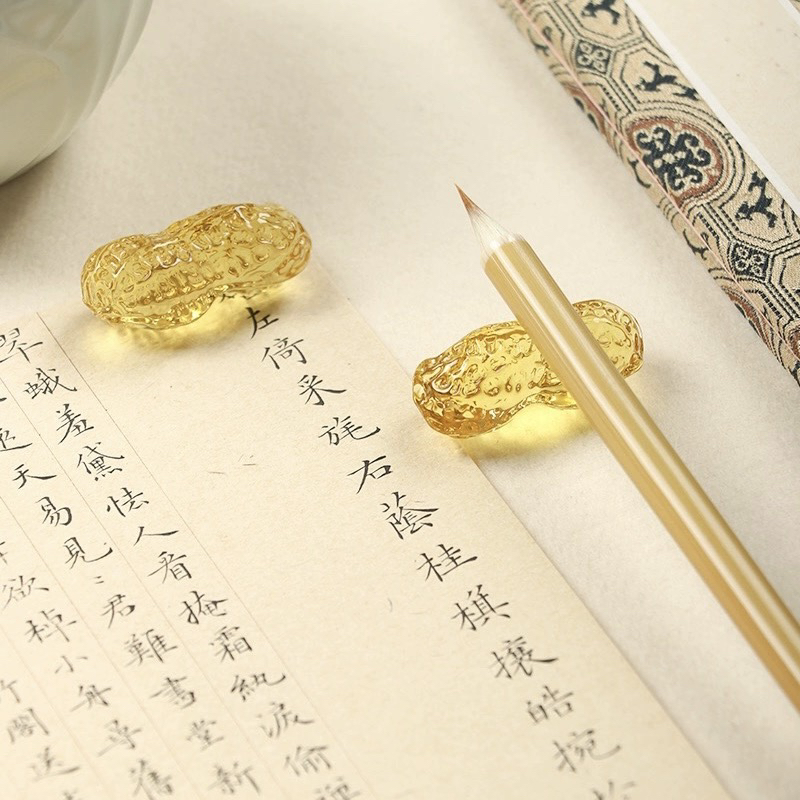 左倚采旄右蔭桂旗攘皓捥於
翠蛾羞黛怯人看掩霜紈淚偷彈
遠天易見〻君難畫堂新
欲棹小舟尋舊